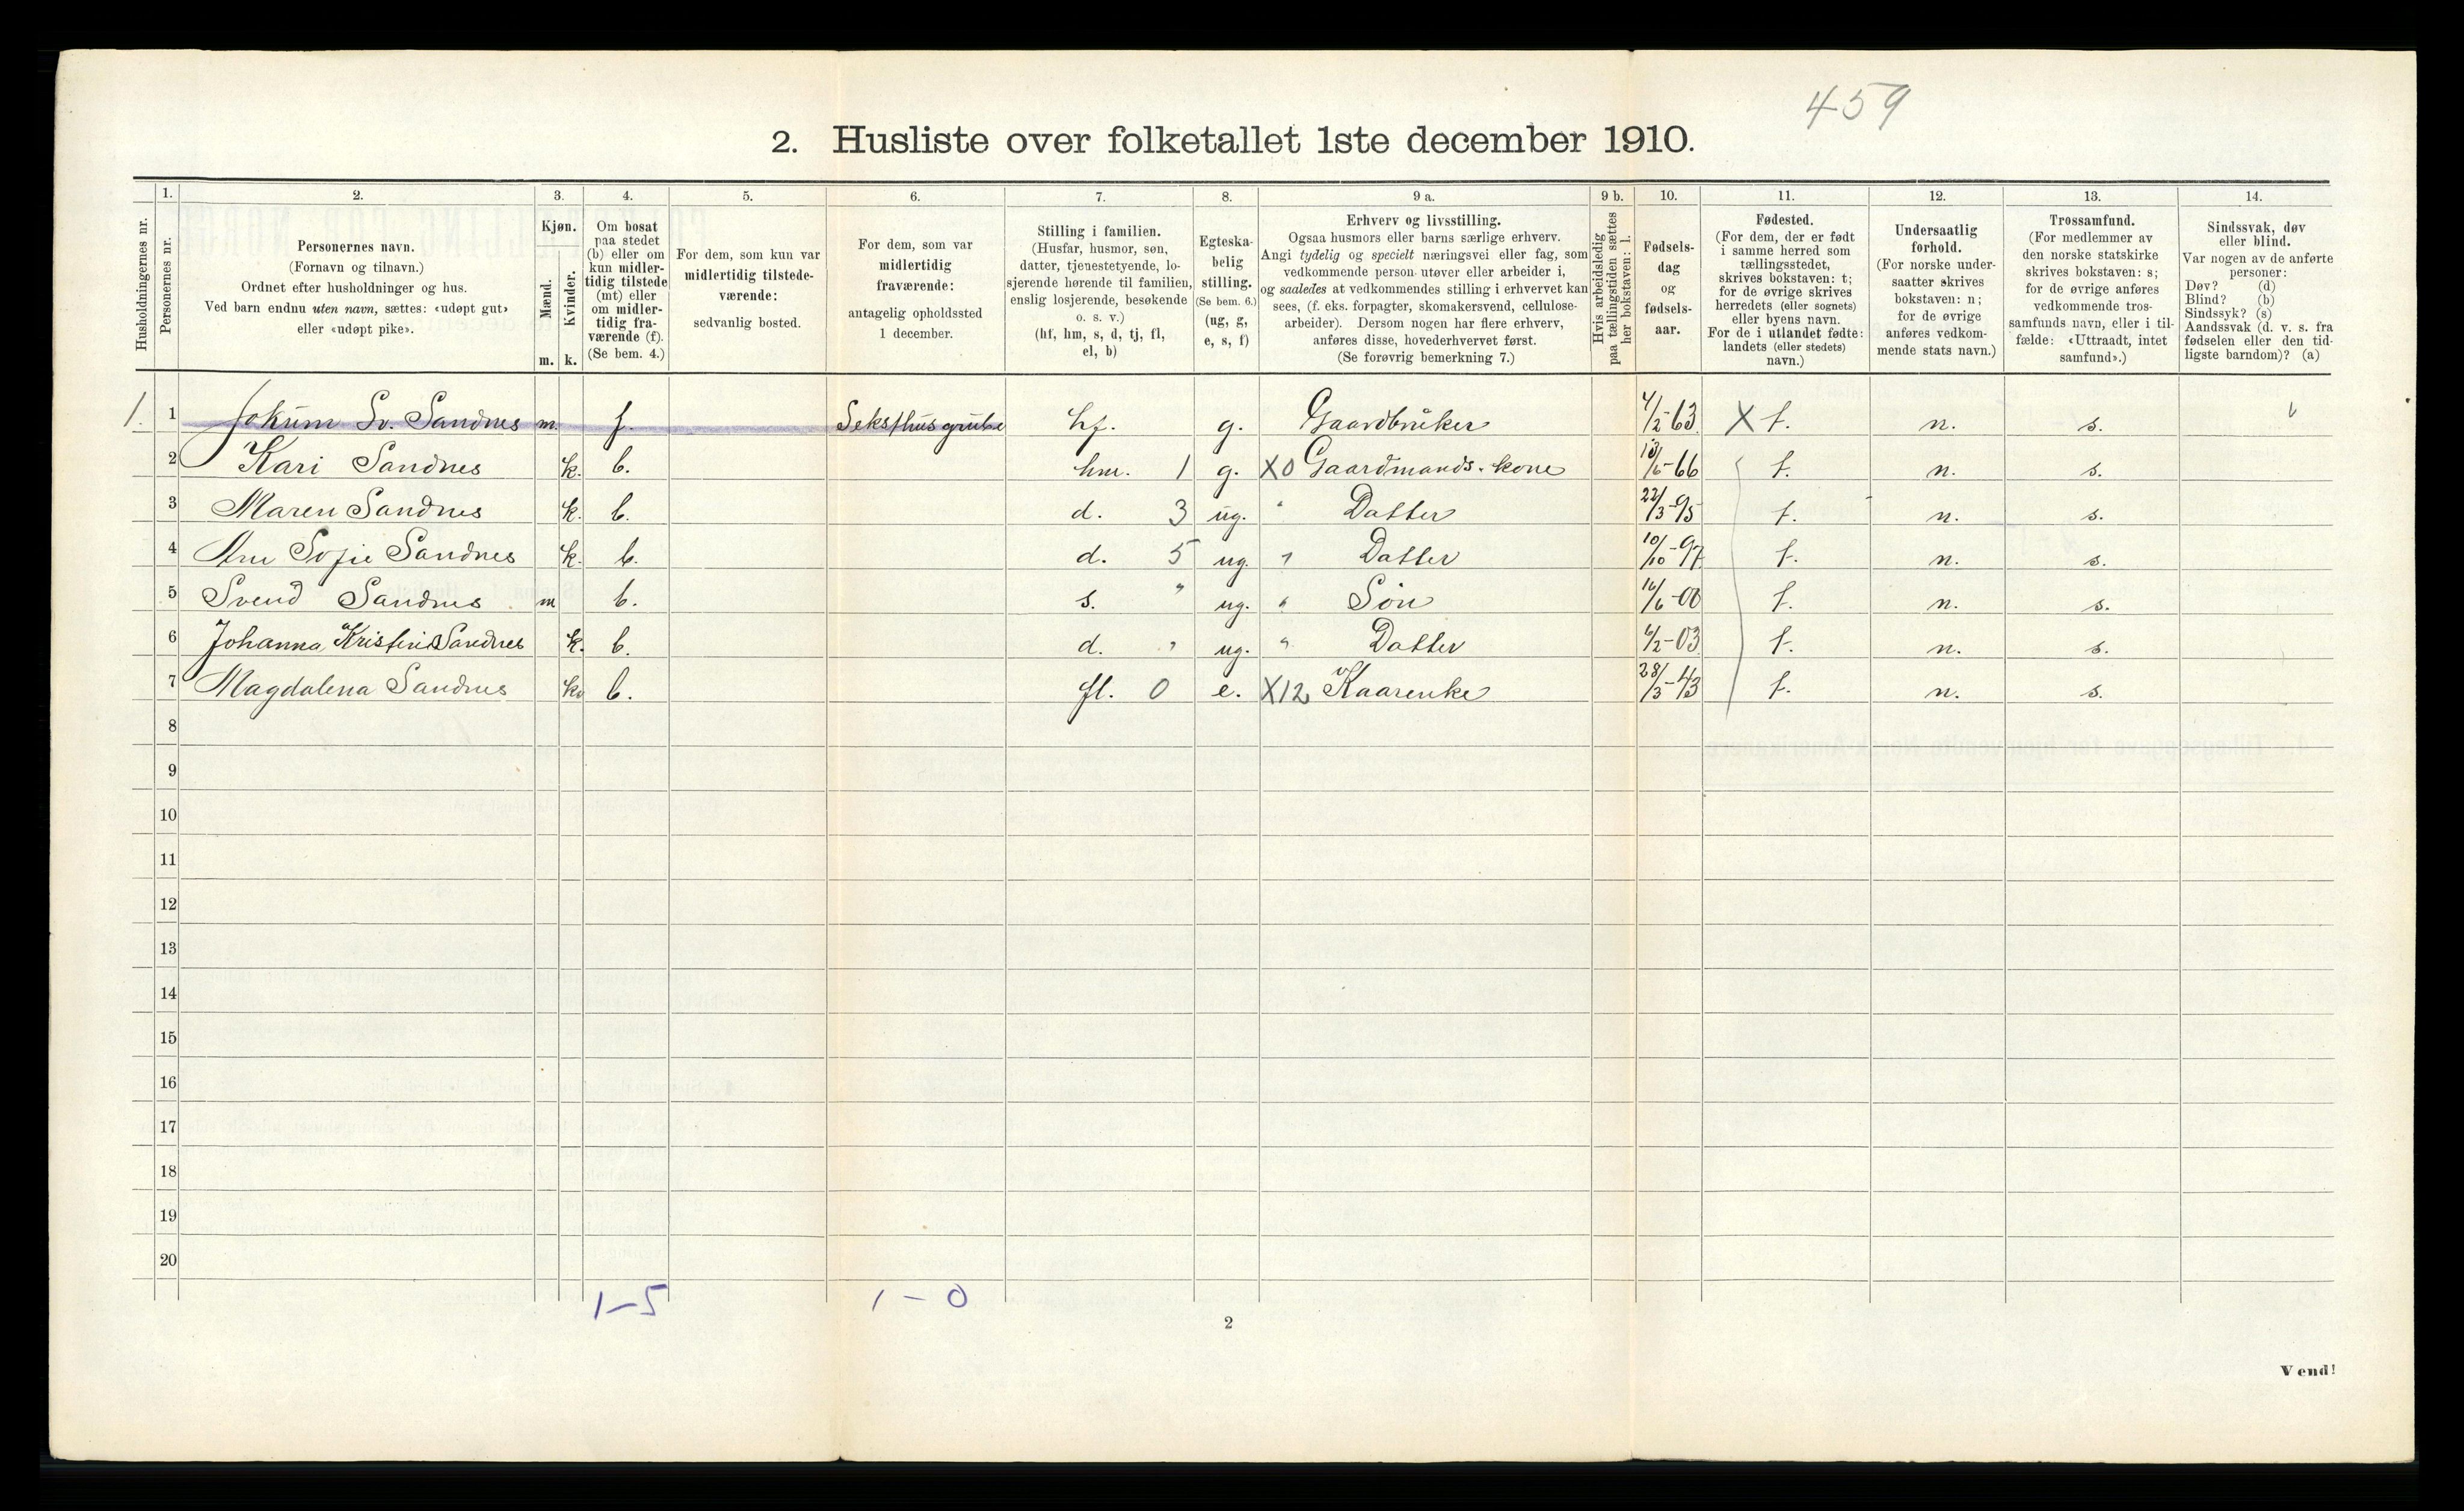 459
2. Husliste over folketallet 1ste december 1910.
Husholdningernes nr.
1.
Personernes nr.
2.
Personernes navn.
(Fornavn og tilnavn.)
Ordnet efter husholdninger og hus.
Ved barn endnu uten navn, sættes: «udøpt gut»
eller «udøpt pike».
3.
Kjøn.
Mænd.
Kvinder.
m. k.
4.
Om bosat
paa stedet
(b) eller om
kun midler-
tidig tilstede
(mt) eller
om midler-
tidig fra-
værende (f).
(Se bem. 4.)
5.
For dem, som kun var
midlertidig tilstede-
værende:
sedvanlig bosted.
6.
For dem, som var
midlertidig
fraværende:
antagelig opholdssted
1 december.
7.
Stilling i familien.
(Husfar, husmor, søn,
datter, tjenestetyende, lo-
sjerende hørende til familien,
enslig losjerende, besøkende
o. s. v.)
(hf, hm, s, d, tj, fl,
el, b)
8.
Egteska-
belig
stilling.
(Se bem. 6.)
(ug, g,
e, s, f)
9 a.
Erhverv og livsstilling.
Ogsaa husmors eller barns særlige erhverv.
Angi tydelig og specielt næringsvei eller fag, som
vedkommende person utøver eller arbeider i,
og saaledes at vedkommendes stilling i erhvervet kan
sees, (f. eks. forpagter, skomakersvend, cellulose-
arbeider). Dersom nogen har flere erhverv,
anføres disse, hovederhvervet først.
(Se forøvrig bemerkning 7.)
9 b.
Hvis arbeidsledig
paa tællingstiden sættes
her bokstaven: l.
10.
Fødsels-
dag
og
fødsels-
aar.
11.
Fødested.
(For dem, der er født
i samme herred som
tællingsstedet,
skrives bokstaven: t;
for de øvrige skrives
herredets (eller sognets)
eller byens navn.
For de i utlandet fødte:
landets (eller stedets)
navn.)
12.
Undersaatlig
forhold.
(For norske under-
saatter skrives
bokstaven: n;
for de øvrige
anføres vedkom-
mende stats navn.)
13.
Trossamfund.
(For medlemmer av
den norske statskirke
skrives bokstaven: s;
for de øvrige anføres
vedkommende tros-
samfunds navn, eller i til-
fælde: «Uttraadt, intet
samfund».)
14.
Sindssvak, døv
eller blind.
Var nogen av de anførte
personer:
Døv? (d)
Blind? (b)
Sindssyk? (s)
Aandssvak (d. v. s. fra
fødselen eller den tid-
ligste barndom)? (a)
1. 1 Jokum Sv. Sandnes m. f. hf. g. Gaardbruker 4/2-63 X t. n. s.
2 Kari Sandnes k. b. hm. 1 g. X0 Gaardmands-kone -66 t. n. s.
3 Maren Sandnes k. b. d. 3 ug. " Datter 22/3-95 t. n. s.
4 Ane Sofie Sandnes k. b. d. 5 ug. " Datter 10/10-97 t. n. s.
5 Svend Sandnes m b. s. " ug. " Søn 16/6-00 t. n. s.
6 Johanna Kristine Sandnes k. b. d. " ug. " Datter 6/2-03 t. n. s.
7 Magdalena Sandnes k b. fl. 0 e. X12 Kaarenke 28/3-43 t. n. s.
8
9
10
11
12
13
14
15
16
17
18
19
20
1-5 1-0
2
Vend!